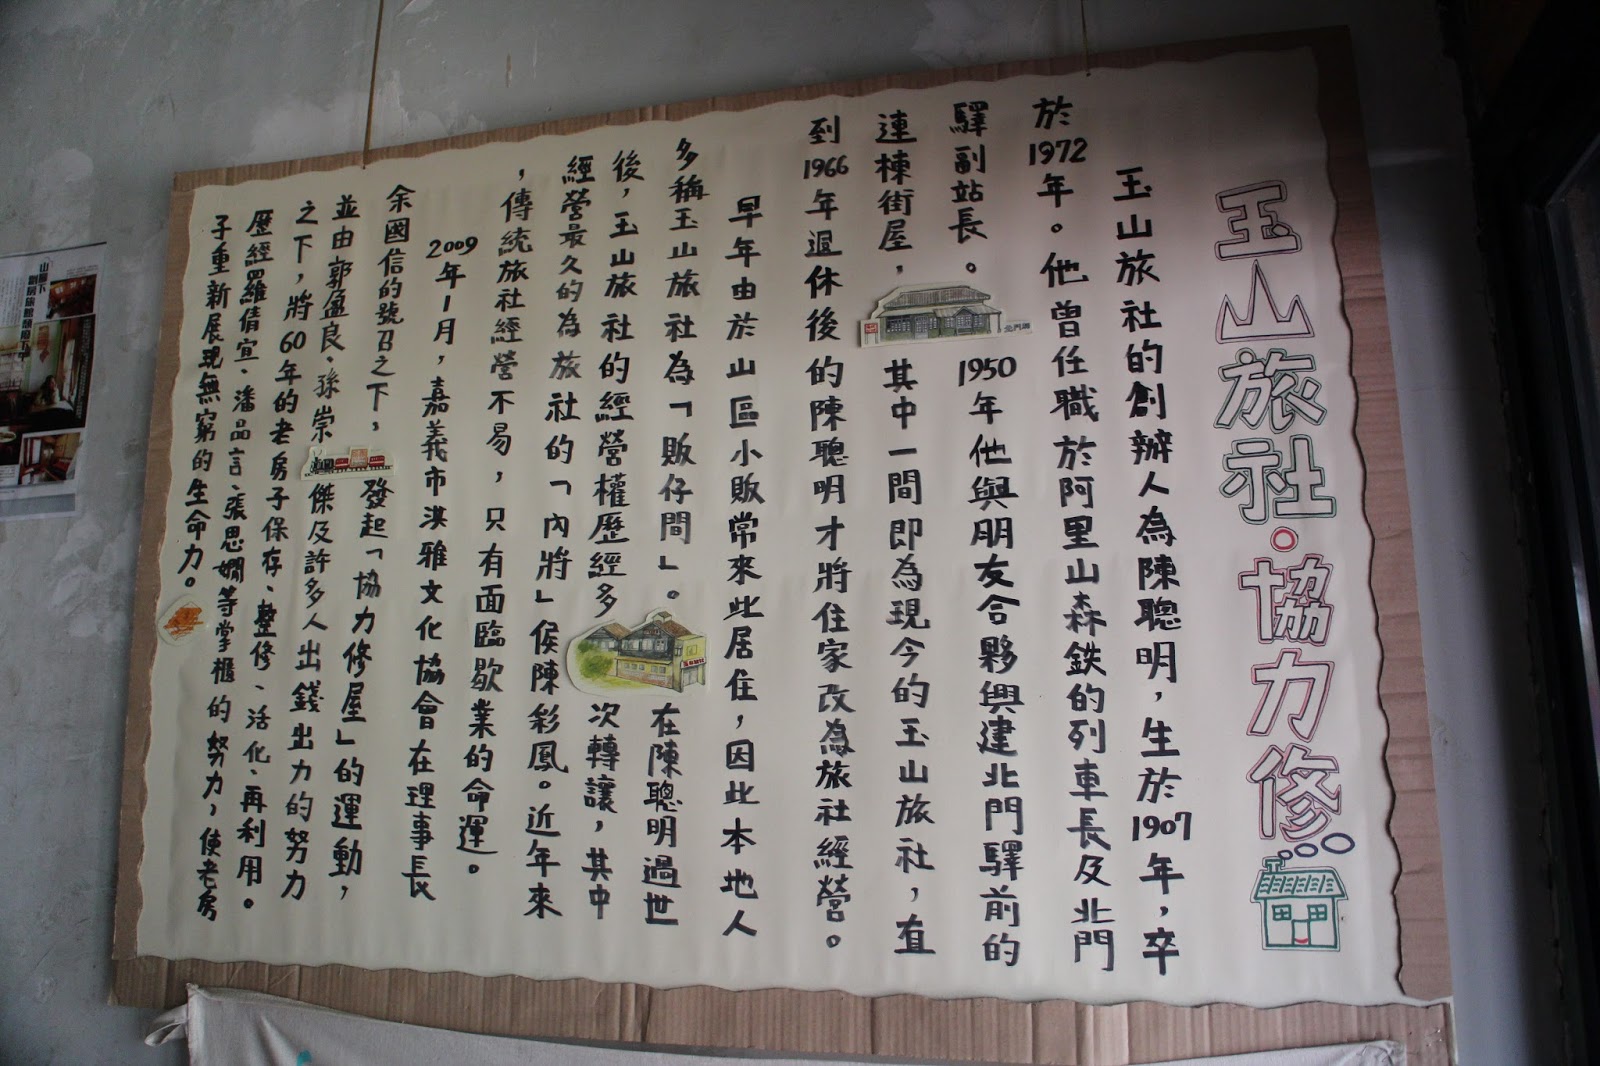 玉山旅社・協力修
玉山旅社的創辦人為陳聰明，生於1907年，卒
於1972年。他曾任職於阿里山森鉄的列車長及北門
驛副站長。1950年他與朋友合夥興建北門驛前的
連棟街屋，其中一間即為現今的玉山旅社，直
到1966年退休後的陳聰明才將住家改為旅社經營。
早年由於山區小販常來此居住，因此本地人
多稱玉山旅社為「販仔間」。在陳聰明過世
後，玉山旅社的經營權歷經多次轉讓，其中
經營最久的為旅社的「內將」侯陳彩鳳。近年來
，傳統旅社經營不易，只有面臨歇業的命運。
2009年1月，嘉義市淇雅文化協會在理事長
余國信的號召之下，發起「協力修屋」的運動，
並由郭盈良、孫崇傑及許多人出錢出力的努力
之下，將60年的老房子保存、整修、活化、再利用。
歷經羅倩宜、潘品言、張思嫺等掌櫃的努力，使老房
子重新展現無窮的生命力。
北門驛